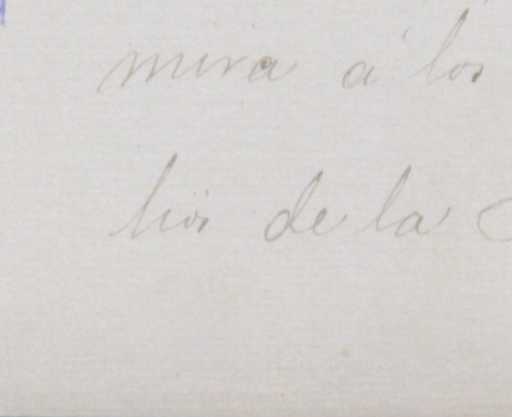 mira á los
lios de la